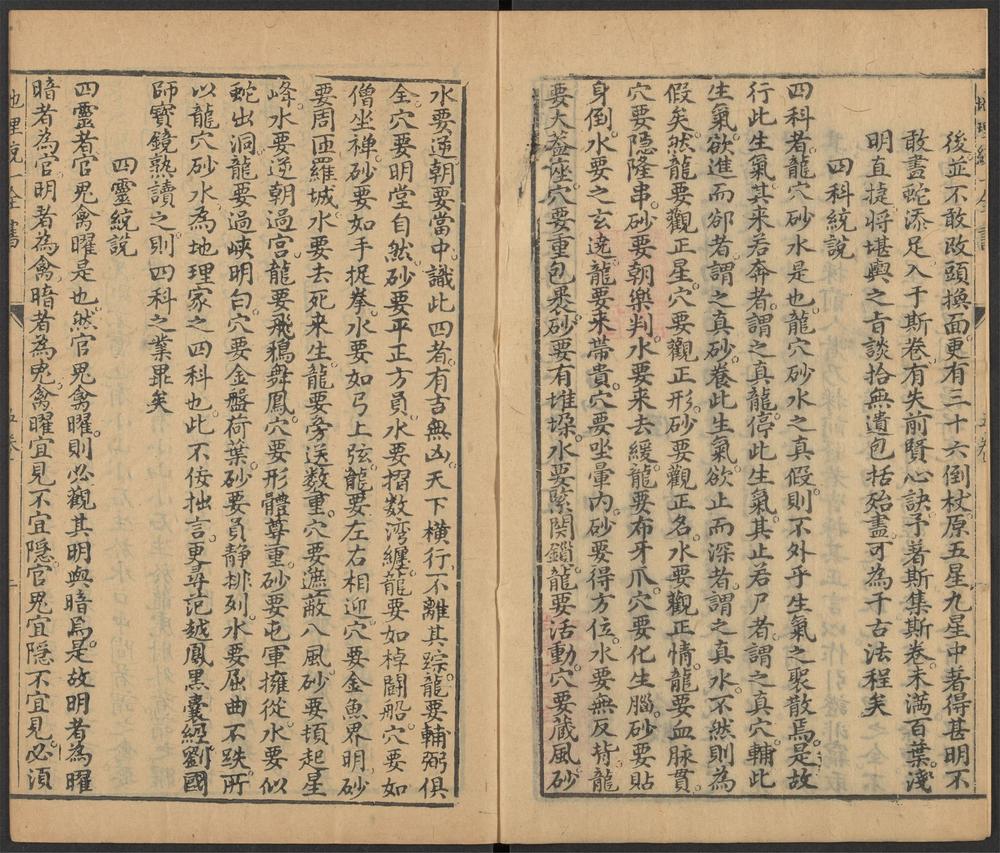 後並不敢改頭換面更有三十六倒杖原五星九星中著得甚明不
敢畫蛇添足入于斯卷有失前賢心訣予著斯集斯卷未滿百葉淺
明直捷將堪輿之旨談拾無遺包括殆盡可為千古法程矣
四科統說
四科者龍穴砂水是也龍穴砂水之真假則不外乎生氣之聚散焉是故
行此生氣其来若奔者謂之真龍停此生氣其止若尸者謂之真穴輔此
生氣欲進而郤者謂之真砂養此生氣欲止而深者謂之真水不然則為
假矣然龍要觀正星穴要觀正形砂要觀正名水要觀正情龍要血脉貫
穴要隱隆串砂要朝樂判水要来去緩龍要布牙爪穴要化生腦砂要貼
身倒水要之玄遶龍要来帶貴穴要坐暈内砂要得方位水要無反背龍
要大蓋座穴要重包裹砂要有堆垜水要緊関鎖龍要活動穴要藏風砂
水要逆朝要當中識此四者有吉無凶天下橫行不離其踪龍要輔弼俱
全穴要明堂自然砂要平正方員水要摺數湾纏龍要如棹鬪船穴要如
僧坐禅砂要如手捉拳水要如弓上弦龍要左右相迎穴要金魚界明砂
要周匝羅城水要去死来生龍要旁送數重穴要遮蔽八風砂要頓起星
峰水要逆朝過宫龍要飛鵝舞鳳穴要形體尊重砂要屯軍擁從水要似
蛇出洞龍要過峽明白穴要金盤荷葉砂要員靜排列水要屈曲不跌所
以龍穴砂水為地理家之四科也此不佞拙言更尋范越鳳黑囊經劉國
師寶鏡熟讀之則四科之業畢矣
四靈統說
四靈者官鬼禽曜是也然官鬼禽曜則必觀其明與暗焉是故明者為曜
暗者為官明者為禽暗者為鬼禽曜宜見不宜隱官鬼宜隱不宜見必須
地理統一全書